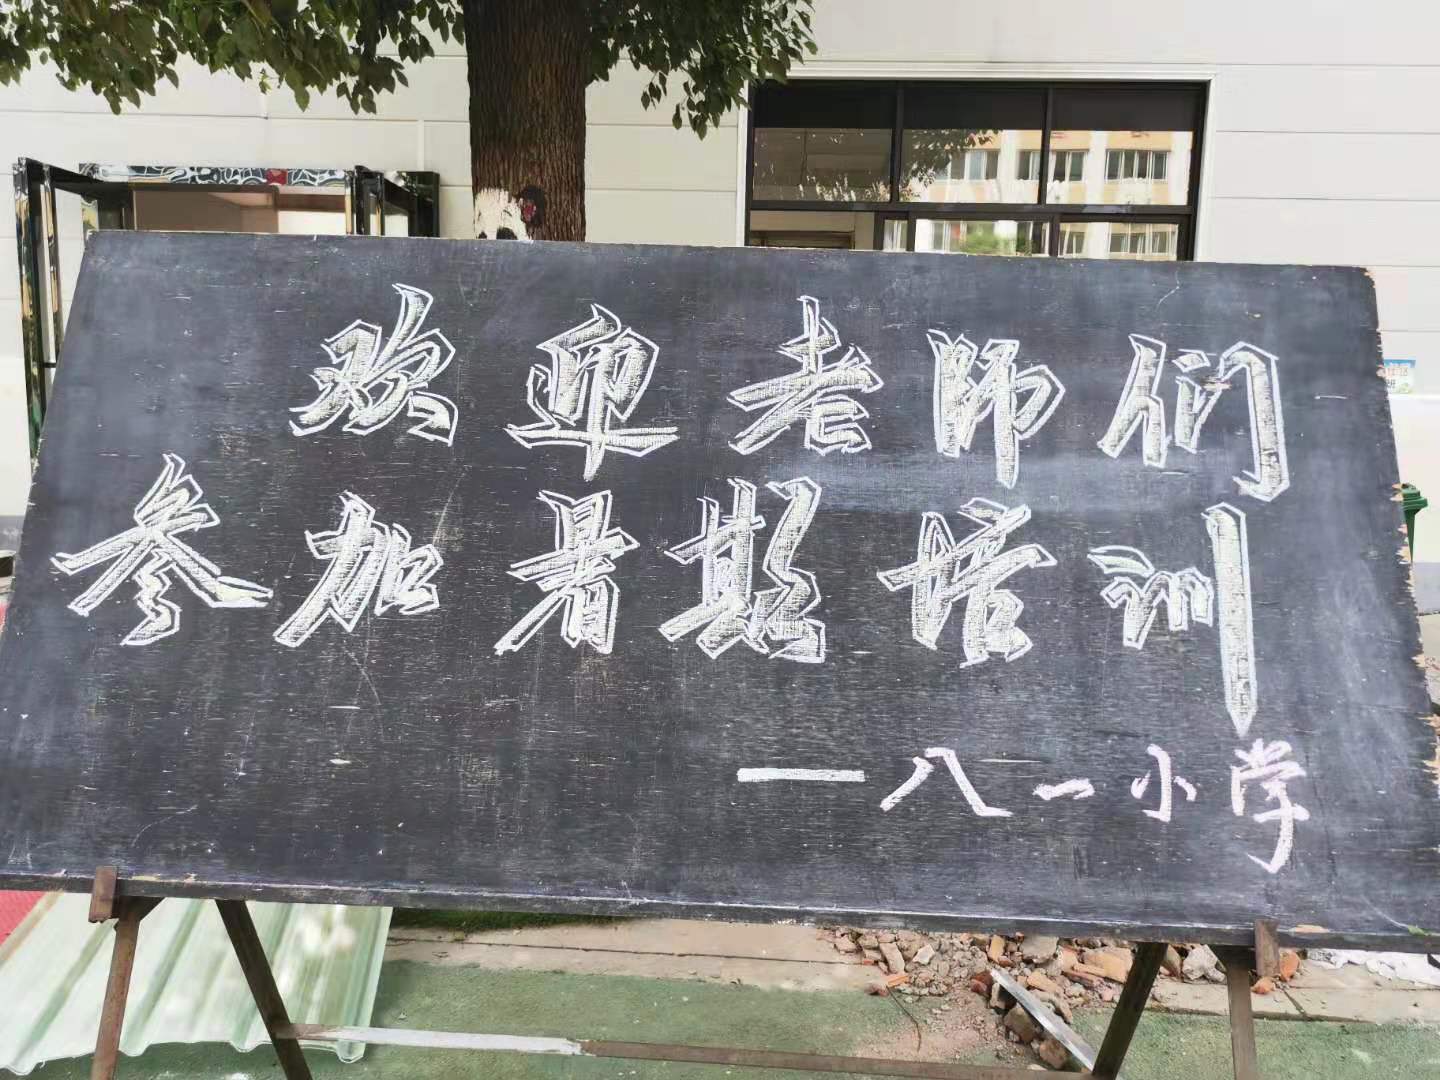 欢迎老师们
参加暑期培训
—八一小学